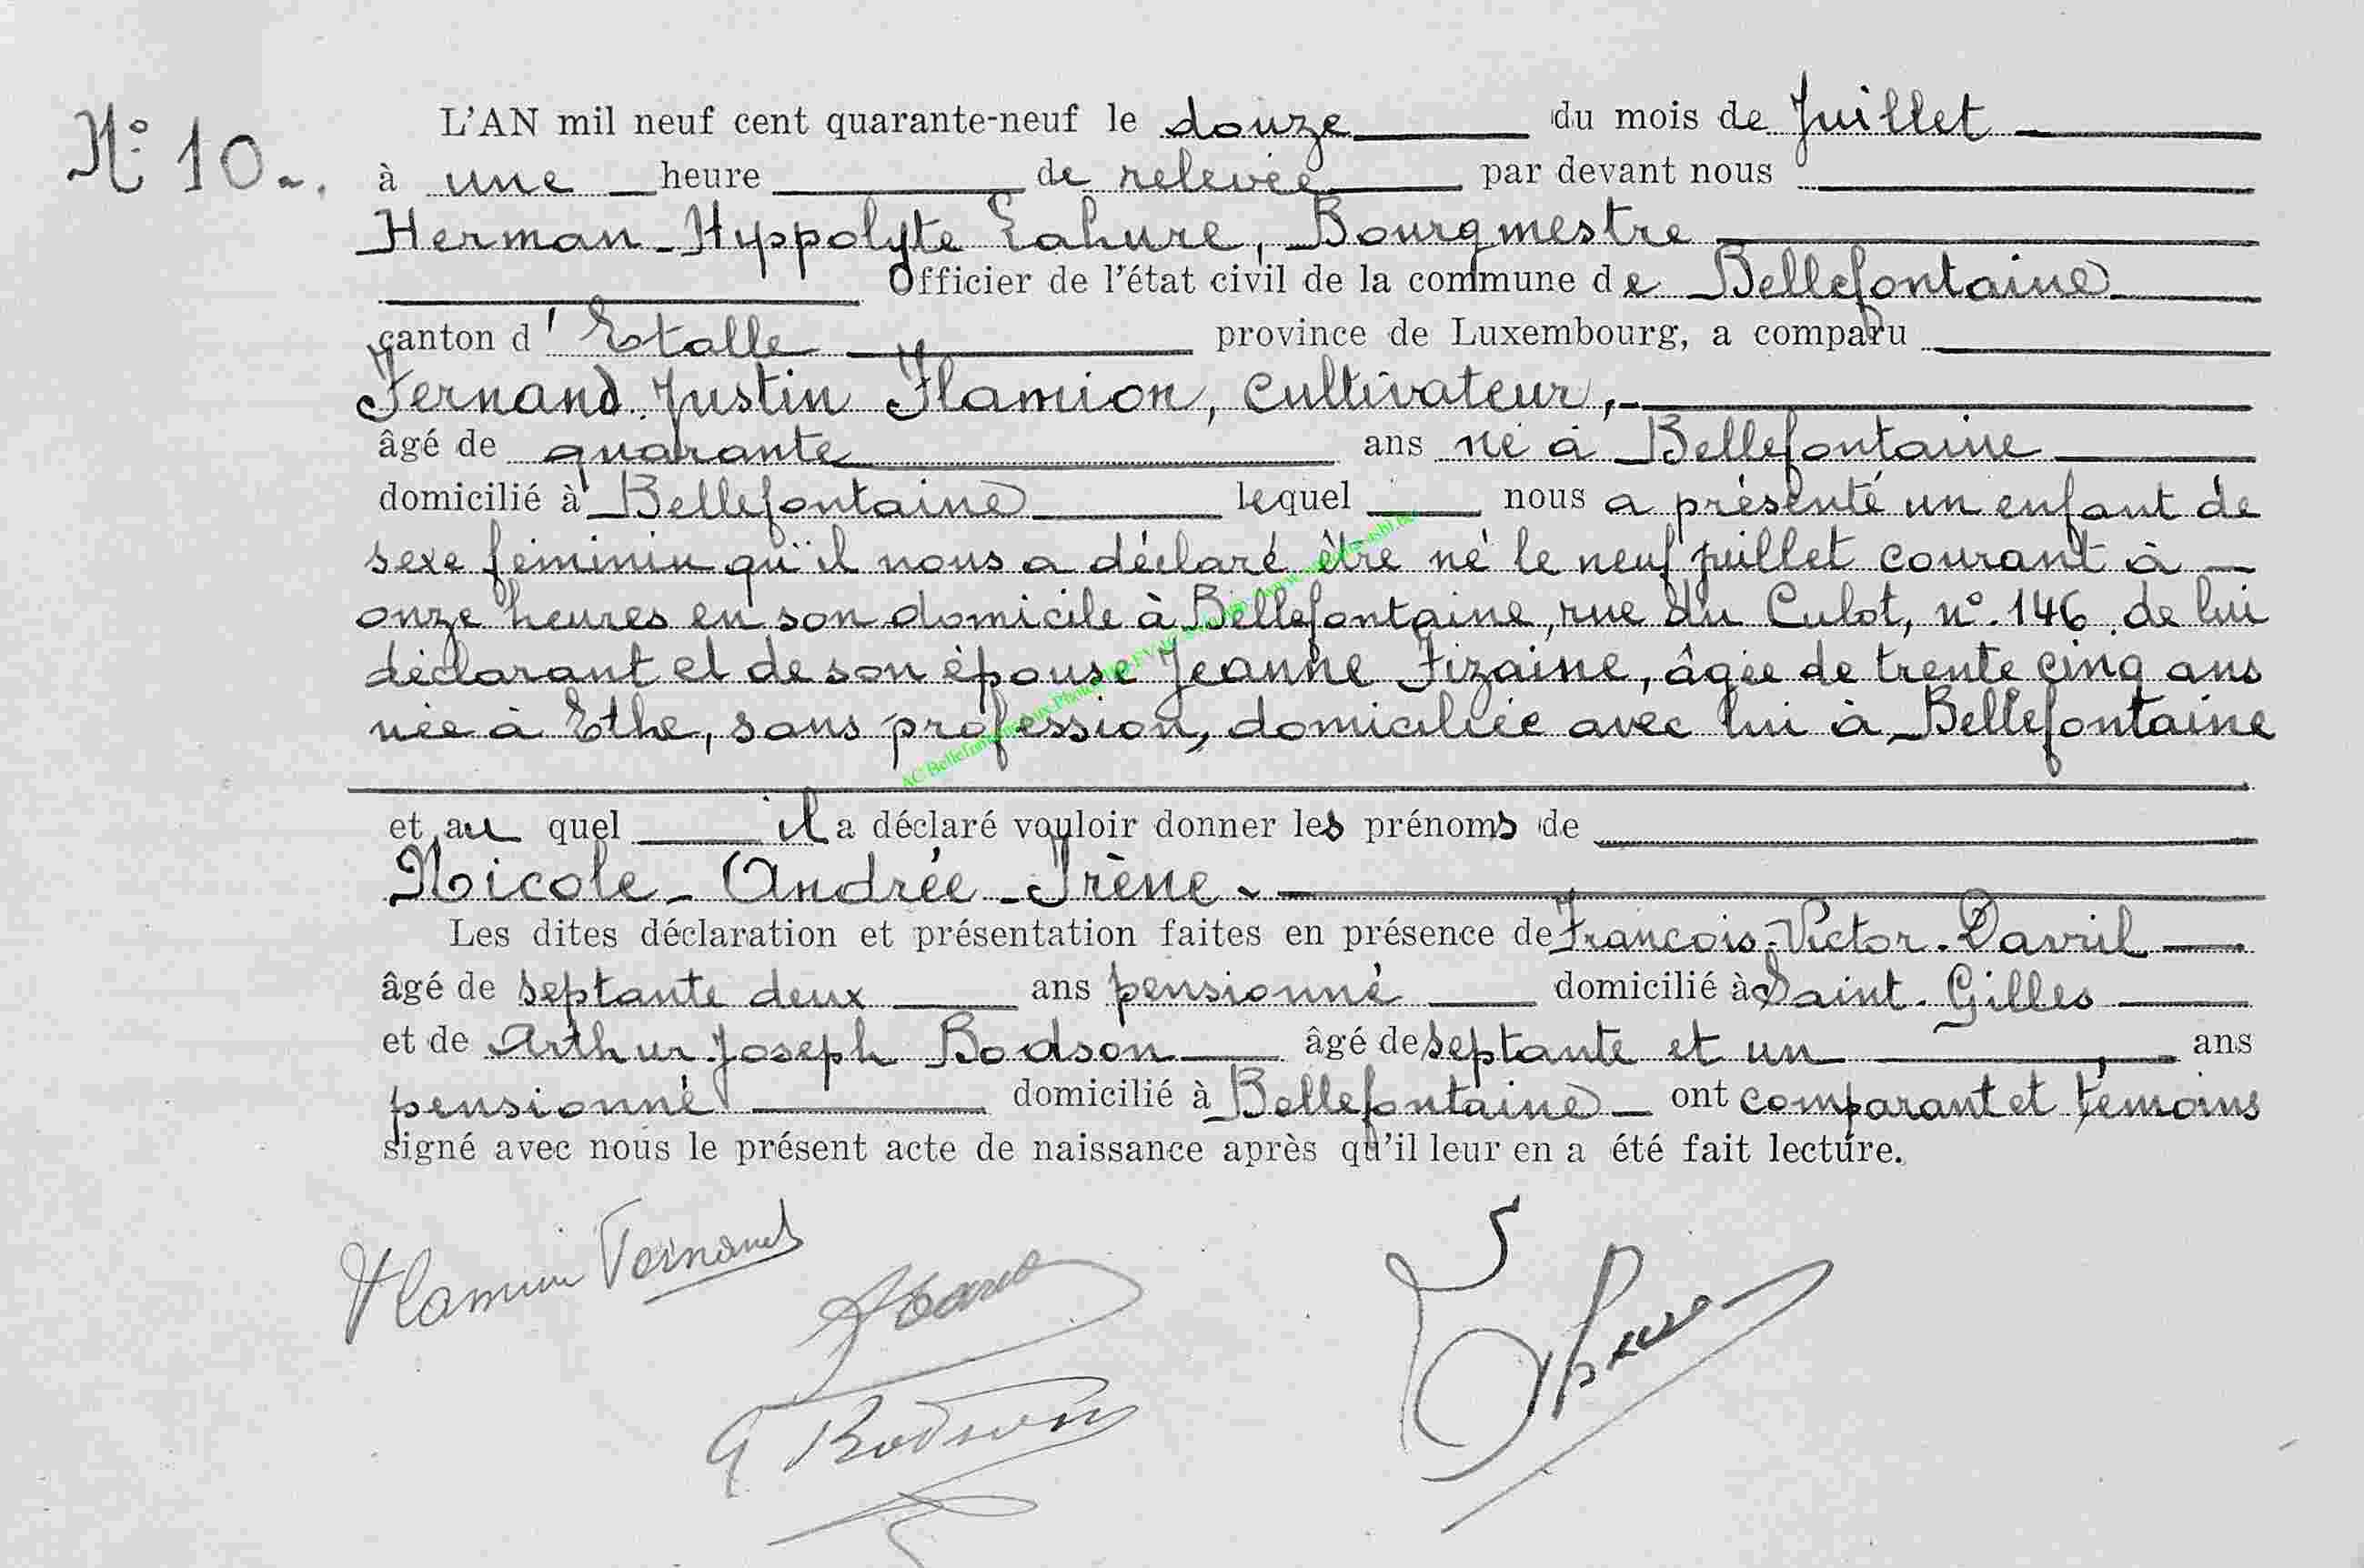 N° 10.
L'AN mil neuf cent quarante-neuf le douze du mois de Juillet
à une heure de relevée par devant nous
Herman-Hyppolyte Lahure, Bourgmestre
Officier de l'état civil de la commune de Bellefontaine
canton d' Etalle province de Luxembourg, a comparu
Fernand Justin Flamion, cultivateur,
âgé de quarante ans né à Bellefontaine
domicilié à Bellefontaine lequel nous a présenté un enfant de
sexe féminin qu'il nous a déclaré être né le neuf juillet courant à
onze heures en son domicile à Bellefontaine, rue du Culot, n° 146 de lui
déclarant et de son épouse Jeanne Fizaine, âgée de trente cinq ans
née à Ethe, sans profession, domiciliée avec lui à Bellefontaine
et au quel il a déclaré vouloir donner les prénoms de
Nicole - Andrée - Irène -
Les dites déclaration et présentation faites en présence de François-Victor-Davril
âgé de septante deux ans pensionné domicilié à Saint-Gilles
et de Arthur Joseph Bodson âgé de septante et un ans
pensionné domicilié à Bellefontaine ont comparant et témoins
signé avec nous le présent acte de naissance après qu'il leur en a été fait lecture.
Flamion Fernand
A Bodson